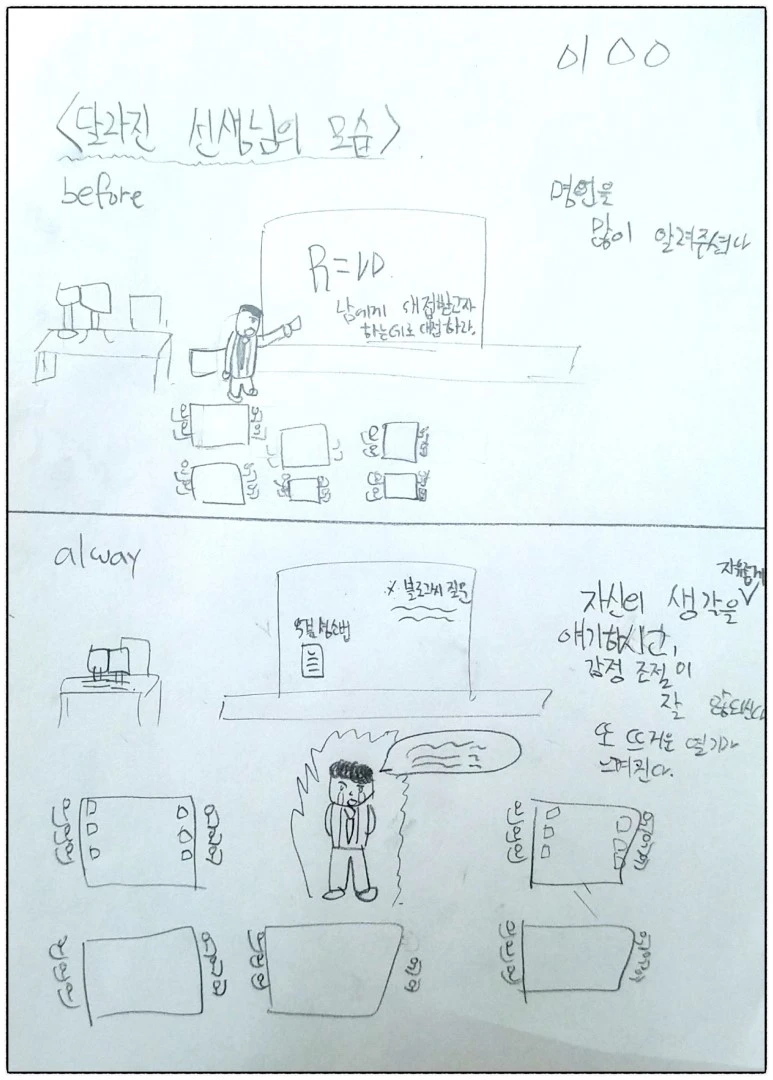 이○○
<달라진 선생님의 모습>
before
명언을
많이 알려주셨다
R=VD
남에게 대접받고자
하는대로 대접하라.
alway
※ 블로그씨 질문
자유롭게
자신의 생각을 ∨
얘기하시고,
감정 조절이
잘
또 뜨거운 열기가
느껴진다.